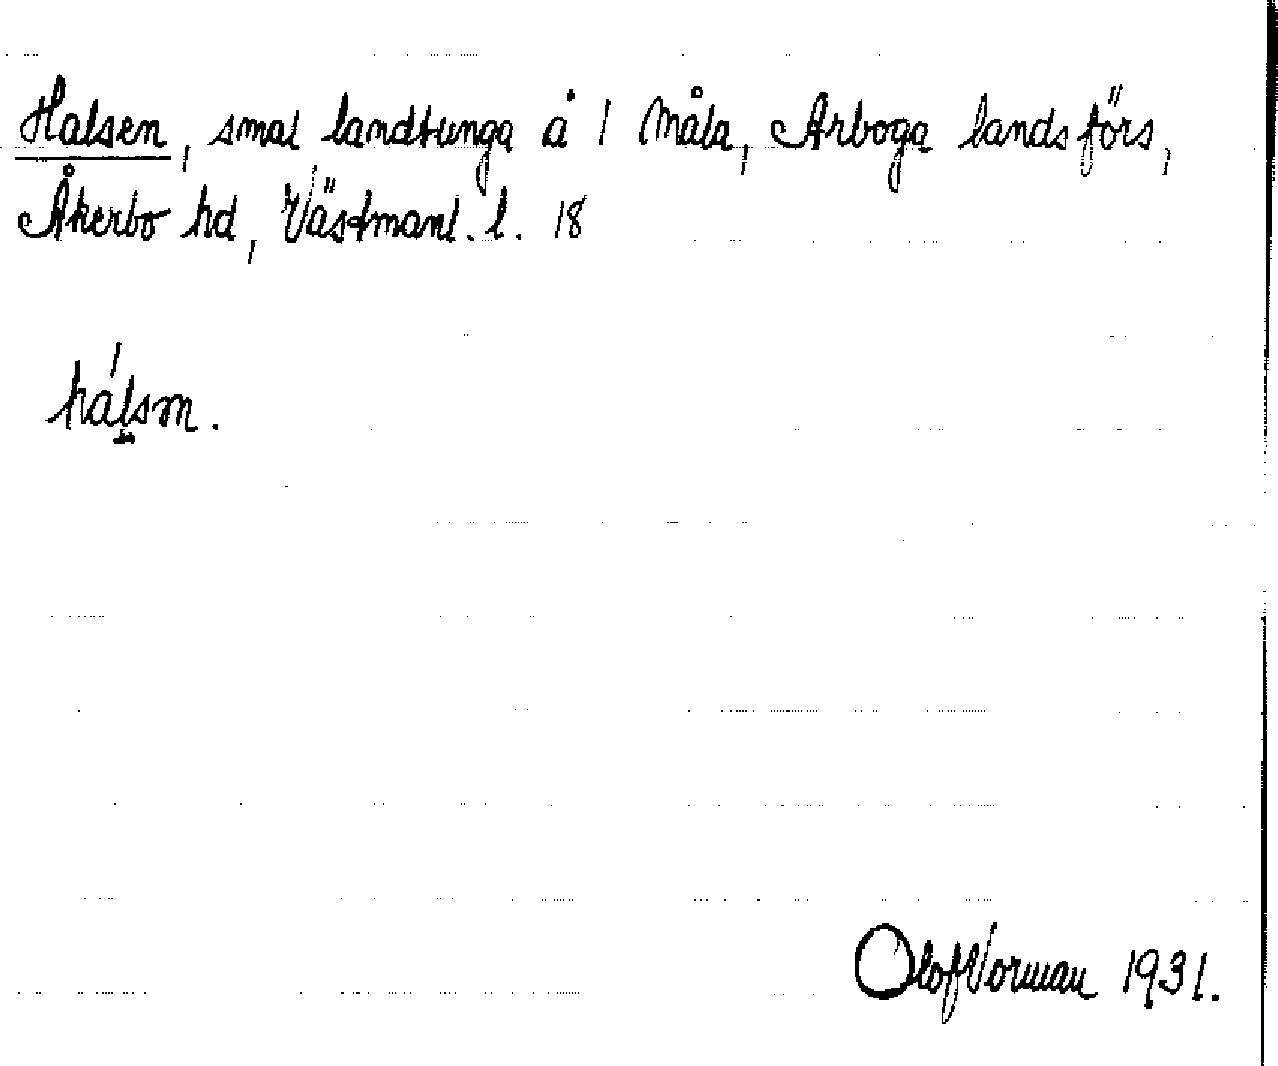 Halsen, smal landtunga å 1 Måla, Arboga landsförs,
Åkerbo hd, Västmanl. l. 18
hálsm.
Olof Vorman 1931.